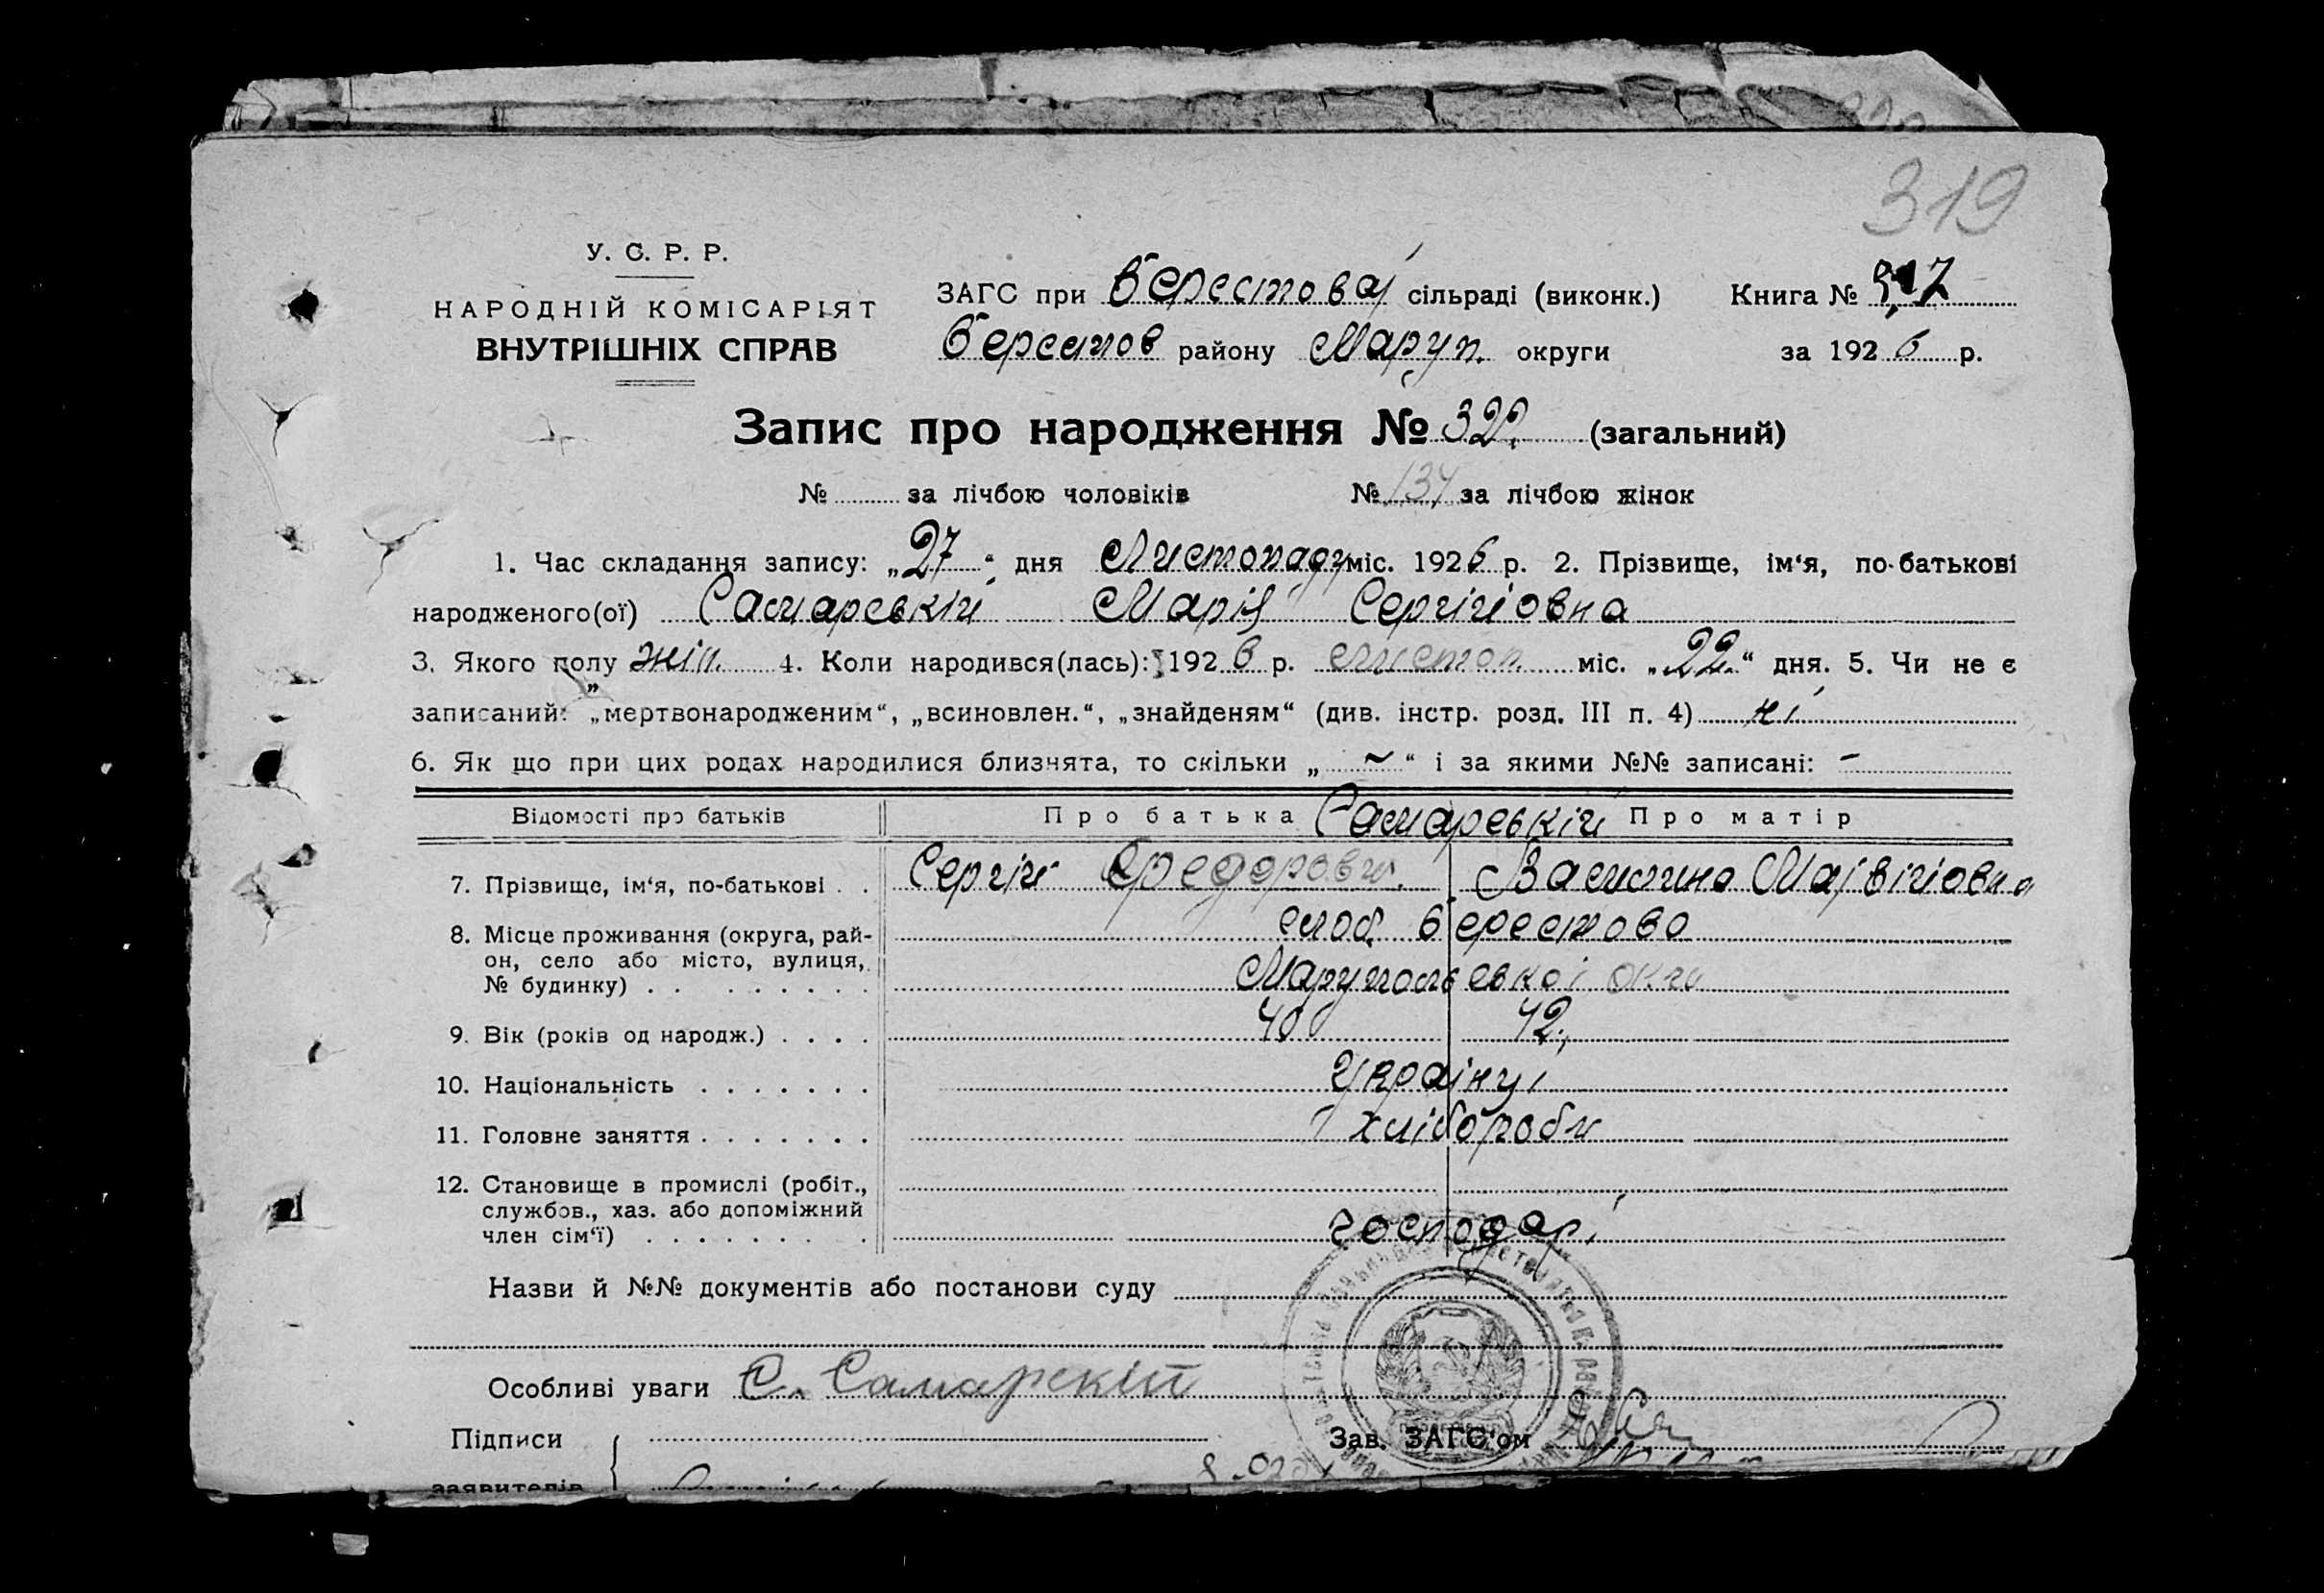 319
У. С. Р. Р.
НАРОДНІЙ КОМІСАРІЯТ
ВНУТРІШНІХ СПРАВ
ЗАГС при Берестовій сільраді (виконк.) Книга №
Берестов району Маруп. округи за 1926 р.
Запис про народження № 322. (загальний)
№ за лічбою чоловіків № 134 за лічбою жінок
1. Час складання запису: „27“ дня Листопаду міс. 1926 р. 2. Прізвище, ім‘я, по-батькові
народженого(ої) Самарський Марія Сергіїовна
3. Якого полу жін. 4. Коли народився(лась): 1926 р. листоп. міс. „22“ дня. 5. Чи не є
записаний: „мертвонародженим“, „всиновлен.“, „знайденям“ (див. інстр. розд. III п. 4) ні
6. Як що при цих родах народилися близнята, то скільки „ ~ “ і за якими №№ записані: –
Відомості про батьків Про батька Самарській Про матір
7. Прізвище, ім‘я, по-батькові . . Сергій Федорович
8. Місце проживання (округа, рай-
он, село або місто, вулиця,
№ будинку) . . . . . . . . .
слоб. Берестово
Марупольської окр
9. Вік (років од народж.) . . . . 40 42
10. Національність . . . . . . . Українці
11. Головне заняття . . . . . . . хлібороби
12. Становище в промислі (робіт.,
службов., хаз. або допоміжний
член сім‘ї) . . . . . . . . господарі
Назви й №№ документів або постанови суду
Особливі уваги С. Самарскій
Підписи
заявителів
Зав. ЗАГС'ом